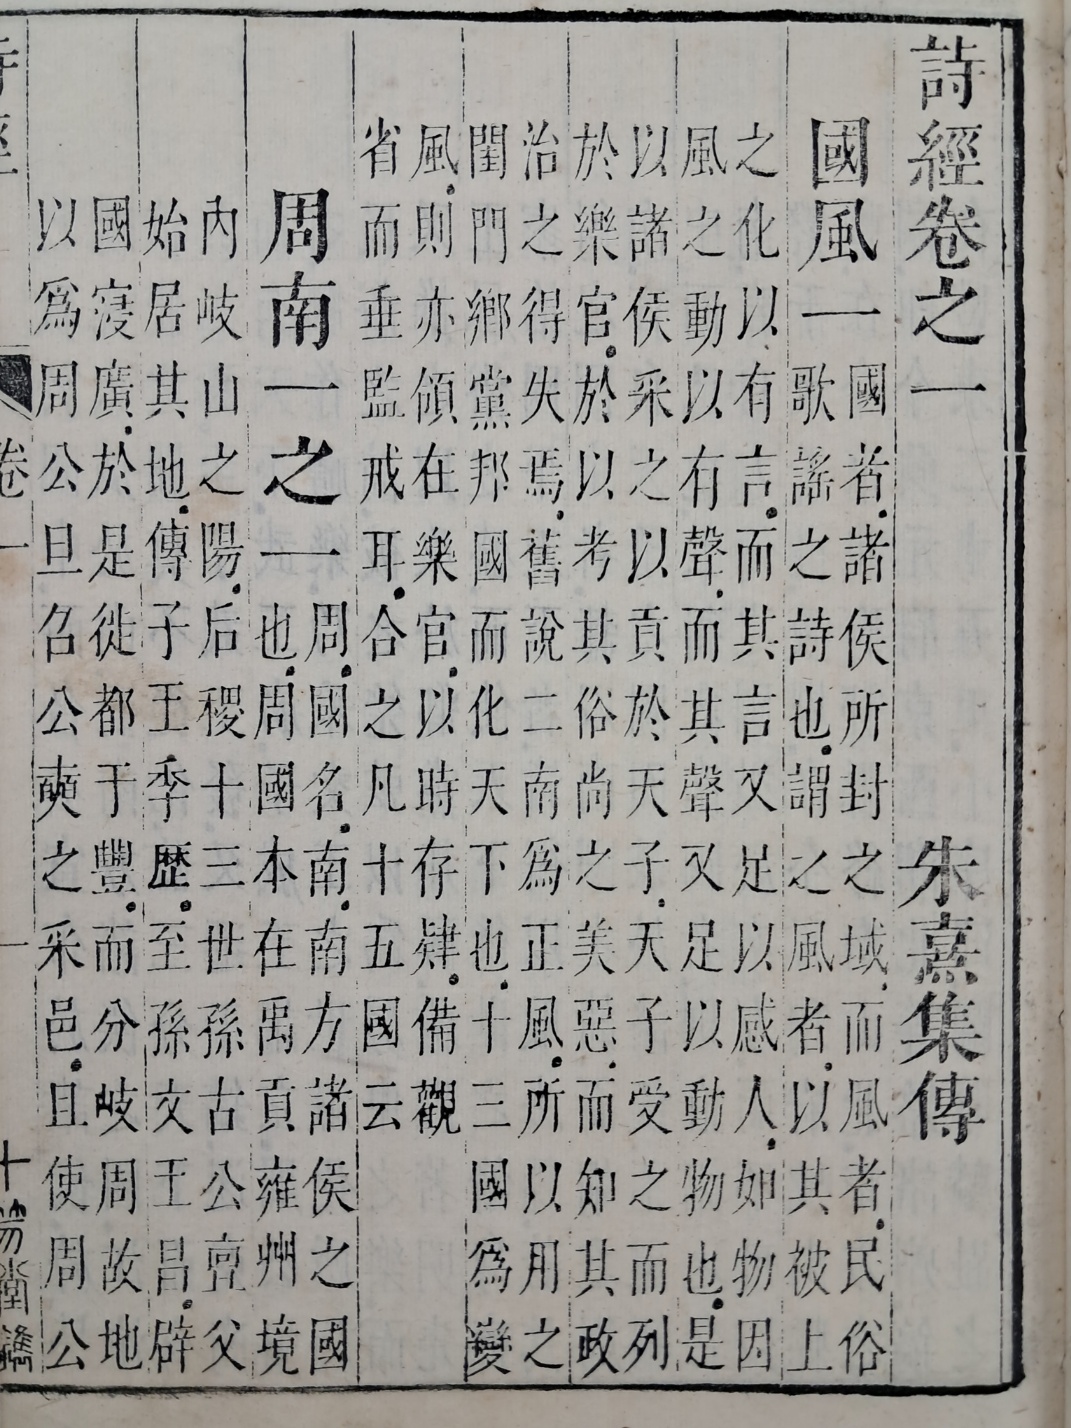 詩經卷之一
朱熹集傳
國風一
國者諸侯所封之域而風者民俗
歌謠之詩也謂之風者以其被上
之化以有言而其言又足以感人如物因
風之動以有聲而其聲又足以動物也是
以諸侯采之以貢於天子天子受之而列
於樂官於以考其俗尚之美惡而知其政
治之得失焉舊說二南爲正風所以用之
閨門鄉黨邦國而化天下也十三國爲變
風則亦領在樂官以時存肄備觀
省而垂監戒耳合之凡十五國云
周南一之一
周國名南南方諸侯之國
也周國本在禹貢雍州境
內岐山之陽后稷十三世孫古公亶父
始居其地傳子王季歷至孫文王昌辟
國寖廣於是徙都于豐而分岐周故地
以爲周公旦召公奭之采邑且使周公
卷一
一